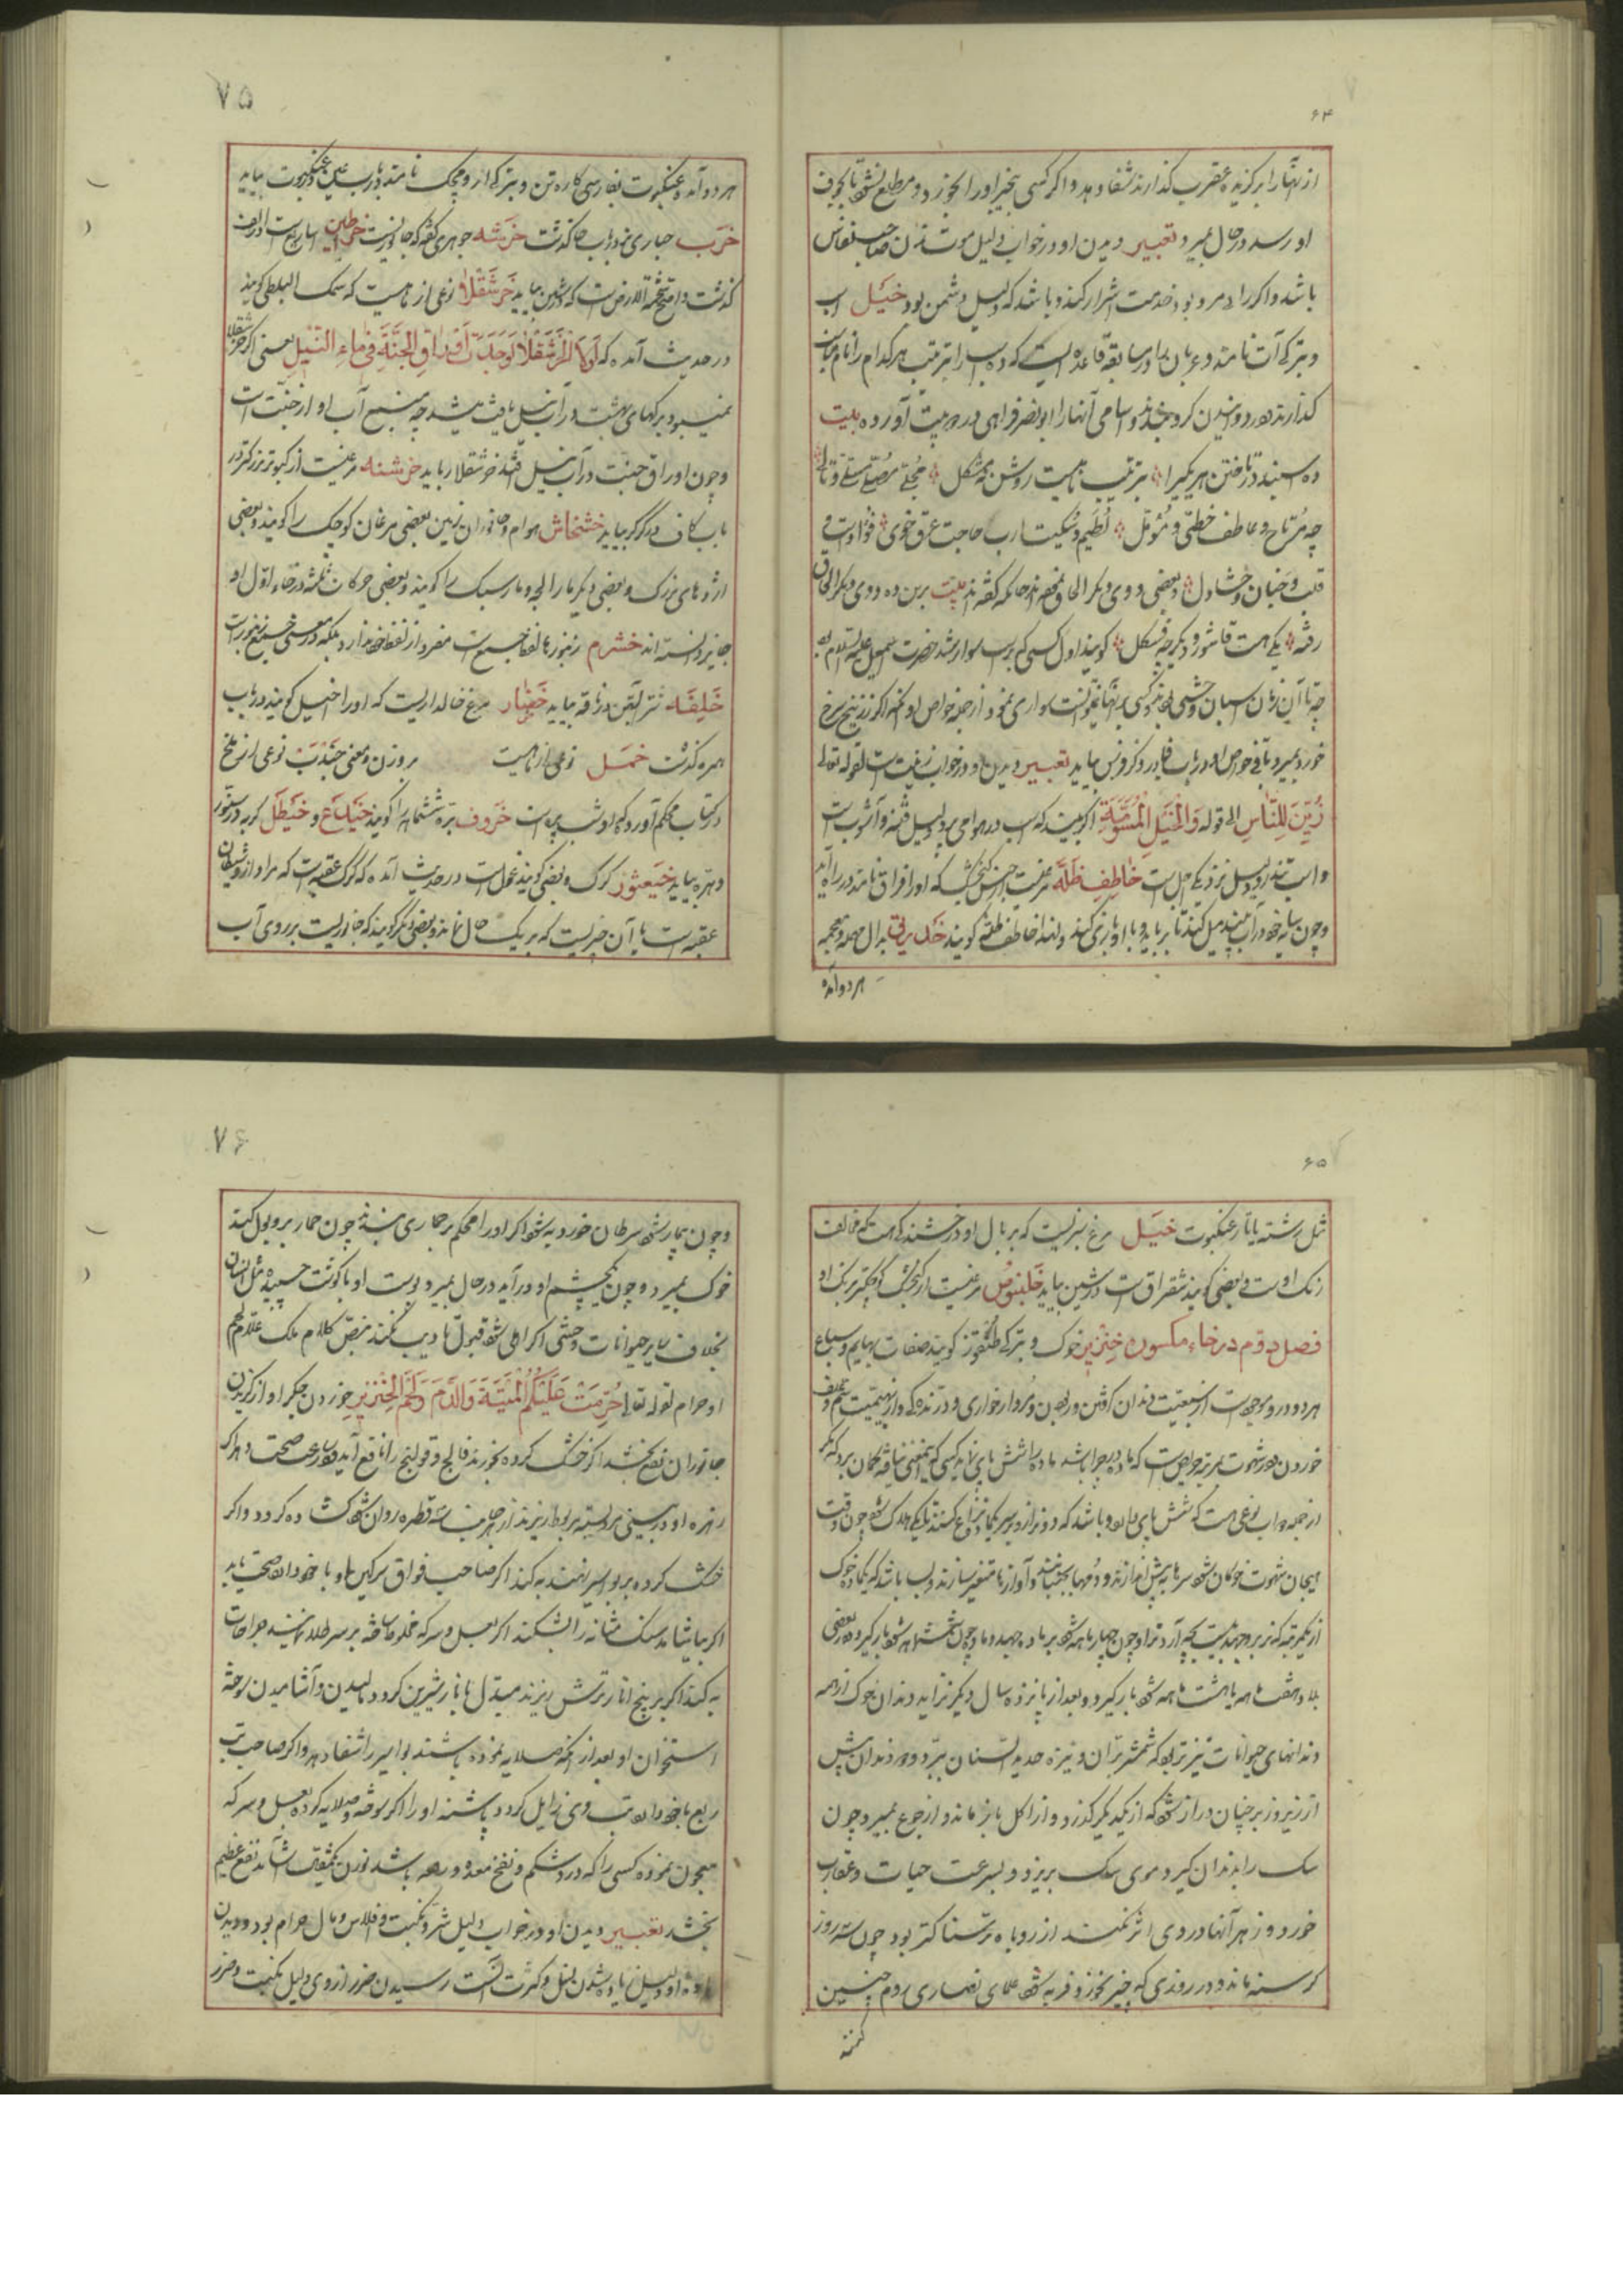 ۶۴
از آنها را بر گزیده عقرب گذارند شفا دهد و اگر کسی بنجیر او را بخورد و مطلع نشود تا بجوف
او رسد در حال بمیرد تعبیر دیدن او در خواب دلیل موت است
باشد و اگر خدمت اشرار کند و باشد که دلیل دشمن بود خیل اسب
و بترکی آت نامند و عربان را در سابقه قاعده است که ده اسب را بترتیب هر کدام را نام
گذارند و اسامی آنها را ابو نصر فراهی در دو بیت آورده بیت
ده اسبند در تاختن هر یکی را بترتیب نامیست روشن نه مشکل مجلی مصلی مسلی و تالی
چه مرتاح و عاطف حظی و مؤمل لطیم و سکیت ارب حاجت عرق خوی فؤاد است و
قلب و جنان و حشا دل و بعضی دوی دیگر الحاق نموده اند چنانکه گفته اند بیت برین ده دوی دیگر الحاق
رفته یکی هست قاشور و دیگر چه فسکل گویند اول کسی که بر اسب سوار شد حضرت اسمعیل علیه السلام بود
چه تا آن زمان اسبان وحشی بودند و کسی بر آنها نمیتوانست سواری نمود از جمله خواص او آنکه اگر زرنیخ سرخ
خورد بمیرد باقی خواص او در باب فا در ذکر فرس بیاید تعبیر دیدن او در خواب زینت است لقوله تعالی
زُیِّنَ لِلنَّاسِ الی قوله وَالْخَیْلِ الْمُسَوَّمَةِ اگر بیند که اسب در هوا می پرد دلیل فتنه و آشوب است
و اسب تند رو دلیل نزدیکی اجل است خاطِفِ ظِلَّه مرغیست از جنس گنجشک که او را فراق نامند در راه آید
و چون سایه خود در آب بیند میل کند تا برباید و با او بازی کند و لهذا خاطف ظله گویند خدرنق بدال مهمله و معجمه
هر دو آمده
۷۵
هر دو آمده عنکبوت بفارسی کاره تن و بترکی ارومجک نامند در باب عین در عنکبوت بیاید
خَرَب حباری نر در باب حا گذشت خَرَشه جوهری گفته که جانوریست خراطین اساریع است در الف
گذشت و اصح شحمة الارض است که در شین بیاید خَرشَقْلا نوعی از ماهیست که سمک البلطی گویند
در حدیث آمده که لَولا الخَرشَقْلا لَوَجَدتَ اَوراقِ الجَنَّةِ فی ماءِ النّیلِ یعنی اگر خرشقلا
نمیبود برگهای بهشت در آب نیل یافت میشد چه منبع آب او از جنت است
و چون اوراق جنت در آب نیل افتد خرشقلا رباید خرشنه مرغیست از کبوتر بزرگتر در
باب کاف در کرکر بیاید خشخاش هوام و جانوران زمین بعضی مرغان کوچک را گویند و بعضی
اژدهای بزرگ و بعضی دیگر مار الجه و مار سبک را گویند و بعضی حرکات ثلثه در خاء اول او
جایز دانسته اند خشرم زنبورها لفظ جمع است مفرد از لفظ خود ندارد بلکه در معنی جمیع زنبور است
خَلِفَة شتر آبستن در ناقه بیاید خُضّار مرغ خالداریست که او را اخیل گویند در باب
همزه گذشت خمل نوعی از ماهیست بر وزن و معنی جُنْدَب نوعی از ملخ
در کتاب محکم آورده که او شب پره است خَروف بره شش ماهه را گویند خَیْدَع و خَیْطَل گربه در سنور
و هره بیاید خَیتَعُور گرگ و بعضی گویند غول است در حدیث آمده که گرگ عقبه است که مراد از او شیطان
عقبه است یا آن چیزیست که بر یک حال نماند و بعضی دیگر گویند که جانوریست بر روی آب
۶۵
مثل رشته یا تار عنکبوت خیل مرغ سبزیست که بر بال او درخشندگی هست که مخالف
رنگ اوست و بعضی گویند شقراق است در شین بیاید خَلَنبوُص مرغیست از گنجشک کوچکتر برنگ او
فصل دوم در خاء مکسوره خِنْزیر خوک و بترکی طنغوز گویند صفات بهایم و سباع
هر دو در او موجود است از سبعیت دندان و مردار خواری و درندگی و از بهیمیت سم و علف
خوردن و در شهوت بمرتبه حریص است که ماده در چرا باشد
از جمله دواب نوعی هست که شش پای دارد و باشد که دو نر از برای یکماده نزاع کنند تا یکی هلاک شود چون وقت
هیجان شهوت خوکان شود سرها به پیش اندازند و دمها بجنبانند و آوازها متغیر سازند و بسا باشد که یکماده خوک
از یکمرتبه که نر بر وجهد بیست بچه آرد و نر او چون چهار ماهه شود بر ماده جهد و ماده چون شش ماهه شود بار گیرد و در بعضی
بلاد هفت ماهه یا هشت ماهه شود بار گیرد و بعد از پانزده سال دیگر نزاید دندان خوک از همه
دندانهای حیوانات تیزتر بود که شمشیر بران و نیزه حدید السنان ببرد و دو دندان پیش
از زیر و زبر چنان دراز شود که از یکدیگر گذرد و از اکل باز ماند و از جوع بمیرد و چون
سک را بدندان گیرد موی سک بریزد و بسرعت حیات و عقارب
خورد و زهر آنها در وی اثر نکند از روباه ترسناکتر بود چون سه روز
گرسنه ماند و در روزی که چیز بخورد فربه شود علمای نصاری روم چنین
گفته
۷۶
و چون بیمار شود سرطان خورد به شود اگر او را محکم بر حماری بندند چون حمار بر او بول کند
خوک بمیرد و چون یکچشم او در آید در حال بمیرد پوست او با گوشت چسپیده مثل انسان
بخلاف سایر حیوانات وحشی اگر اهلی شود قبول تادیب نکند بنص کلام ملک علام لحم
او حرام لقوله تعالی حُرِّمَتْ عَلَیْکُمُ الْمَیْتَةُ وَالدَّمُ وَلَحْمُ الْخِنْزیرِ خوردن جگر او از گزیدن
جانوران نفع بخشد اگر خشک کرده بخورند فالج و قولنج را نافع آید و بسرعت صحت دهد اگر
زهره او در بینی بواسیر بریزند از هر جانب سه قطره روان شود گشاده گردد و اگر
خشک کرده بر بواسیر نهند به کند اگر صاحب فواق سرگین او با خود دارد صحت یابد
اگر بیاشامد سنگ مثانه را بشکند اگر بعسل و سرکه مخلوط ساخته بر سر طلا نمایند جراحات
به کند اگر بر بیخ انار ترش ریزند مبدل بانار شیرین گردد مالیدن و آشامیدن سوخته
استخوان او بعد از آنکه صلایه نموده باشند بواسیر را شفا دهد و اگر صاحب تب
ربع با خود دارد تب وی زایل گردد پاشنه او را اگر سوخته و صلایه کرده بعسل و سرکه
معجون نموده کسی را که درد شکم و نفخ معده باشد بوزن یکمثقال آشامد نفع عظیم
بخشد تعبیر دیدن او در خواب دلیل شر و نکبت و افلاس و مال حرام بود و دیدن
ماده او دلیل زیاده شدن نسل و کثرت است رسیدن ضرر از وی دلیل نکبت و ضرر